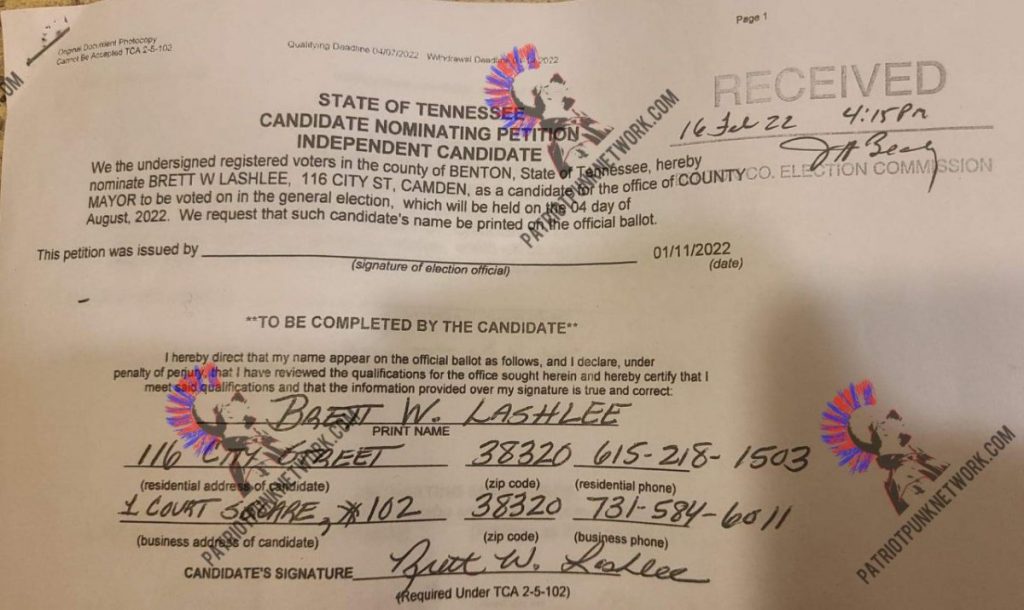 Page 1
Original Document Photocopy
Cannot Be Accepted TCA 2-5-102
Qualifying Deadline 04/07/2022 Withdrawal Deadline 2022
RECEIVED
16 Feb 22 4:15 Pm
CO. ELECTION COMMISSION
STATE OF TENNESSEE
CANDIDATE NOMINATING PETITION
INDEPENDENT CANDIDATE
We the undersigned registered voters in the county of BENTON, State of Tennessee, hereby
nominate BRETT W LASHLEE, 116 CITY ST, CAMDEN, as a candidate for the office of COUNTY
MAYOR to be voted on in the general election, which will be held on the 04 day of
August, 2022. We request that such candidate's name be printed on the official ballot.
This petition was issued by 01/11/2022
(signature of election official) (date)
**TO BE COMPLETED BY THE CANDIDATE**
I hereby direct that my name appear on the official ballot as follows, and I declare, under
penalty of perjury, that I have reviewed the qualifications for the office sought herein and hereby certify that I
meet said qualifications and that the information provided over my signature is true and correct:
BRETT W. LASHLEE
PRINT NAME
116 CITY STREET 38320 615-218-1503
(residential address of candidate) (zip code) (residential phone)
1 COURT SQUARE, #102 38320 731-584-6011
(business address of candidate) (zip code) (business phone)
CANDIDATE'S SIGNATURE Brett W. Lashlee
(Required Under TCA 2-5-102)
PATRIOTPUNKNETWORK.COM
PATRIOTPUNKNETWORK.COM
PATRIOTPUNKNETWORK.COM
.COM